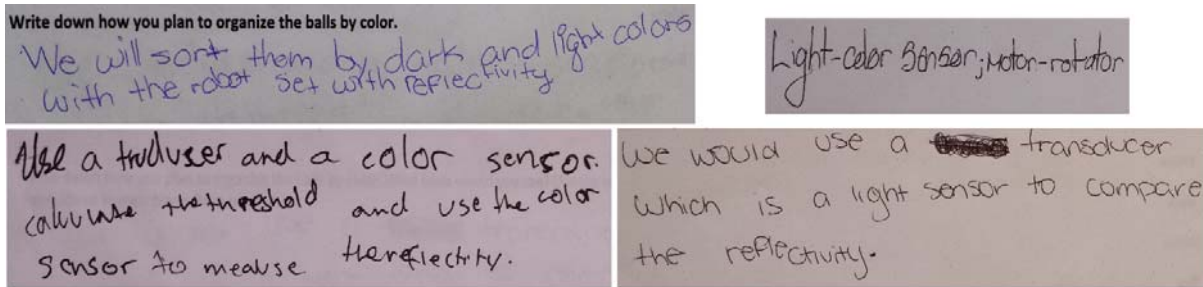 Write down how you plan to organize the balls by color.
We will sort them by dark and light colors
with the robot set with reflectivity
Light-color sensor; Motor-rotator
Use a truduser and a color sensor.
calculate the threshold and use the color
sensor to mealuse thereflectity.
We would use a transducer
which is a light sensor to compare
the reflectivity.